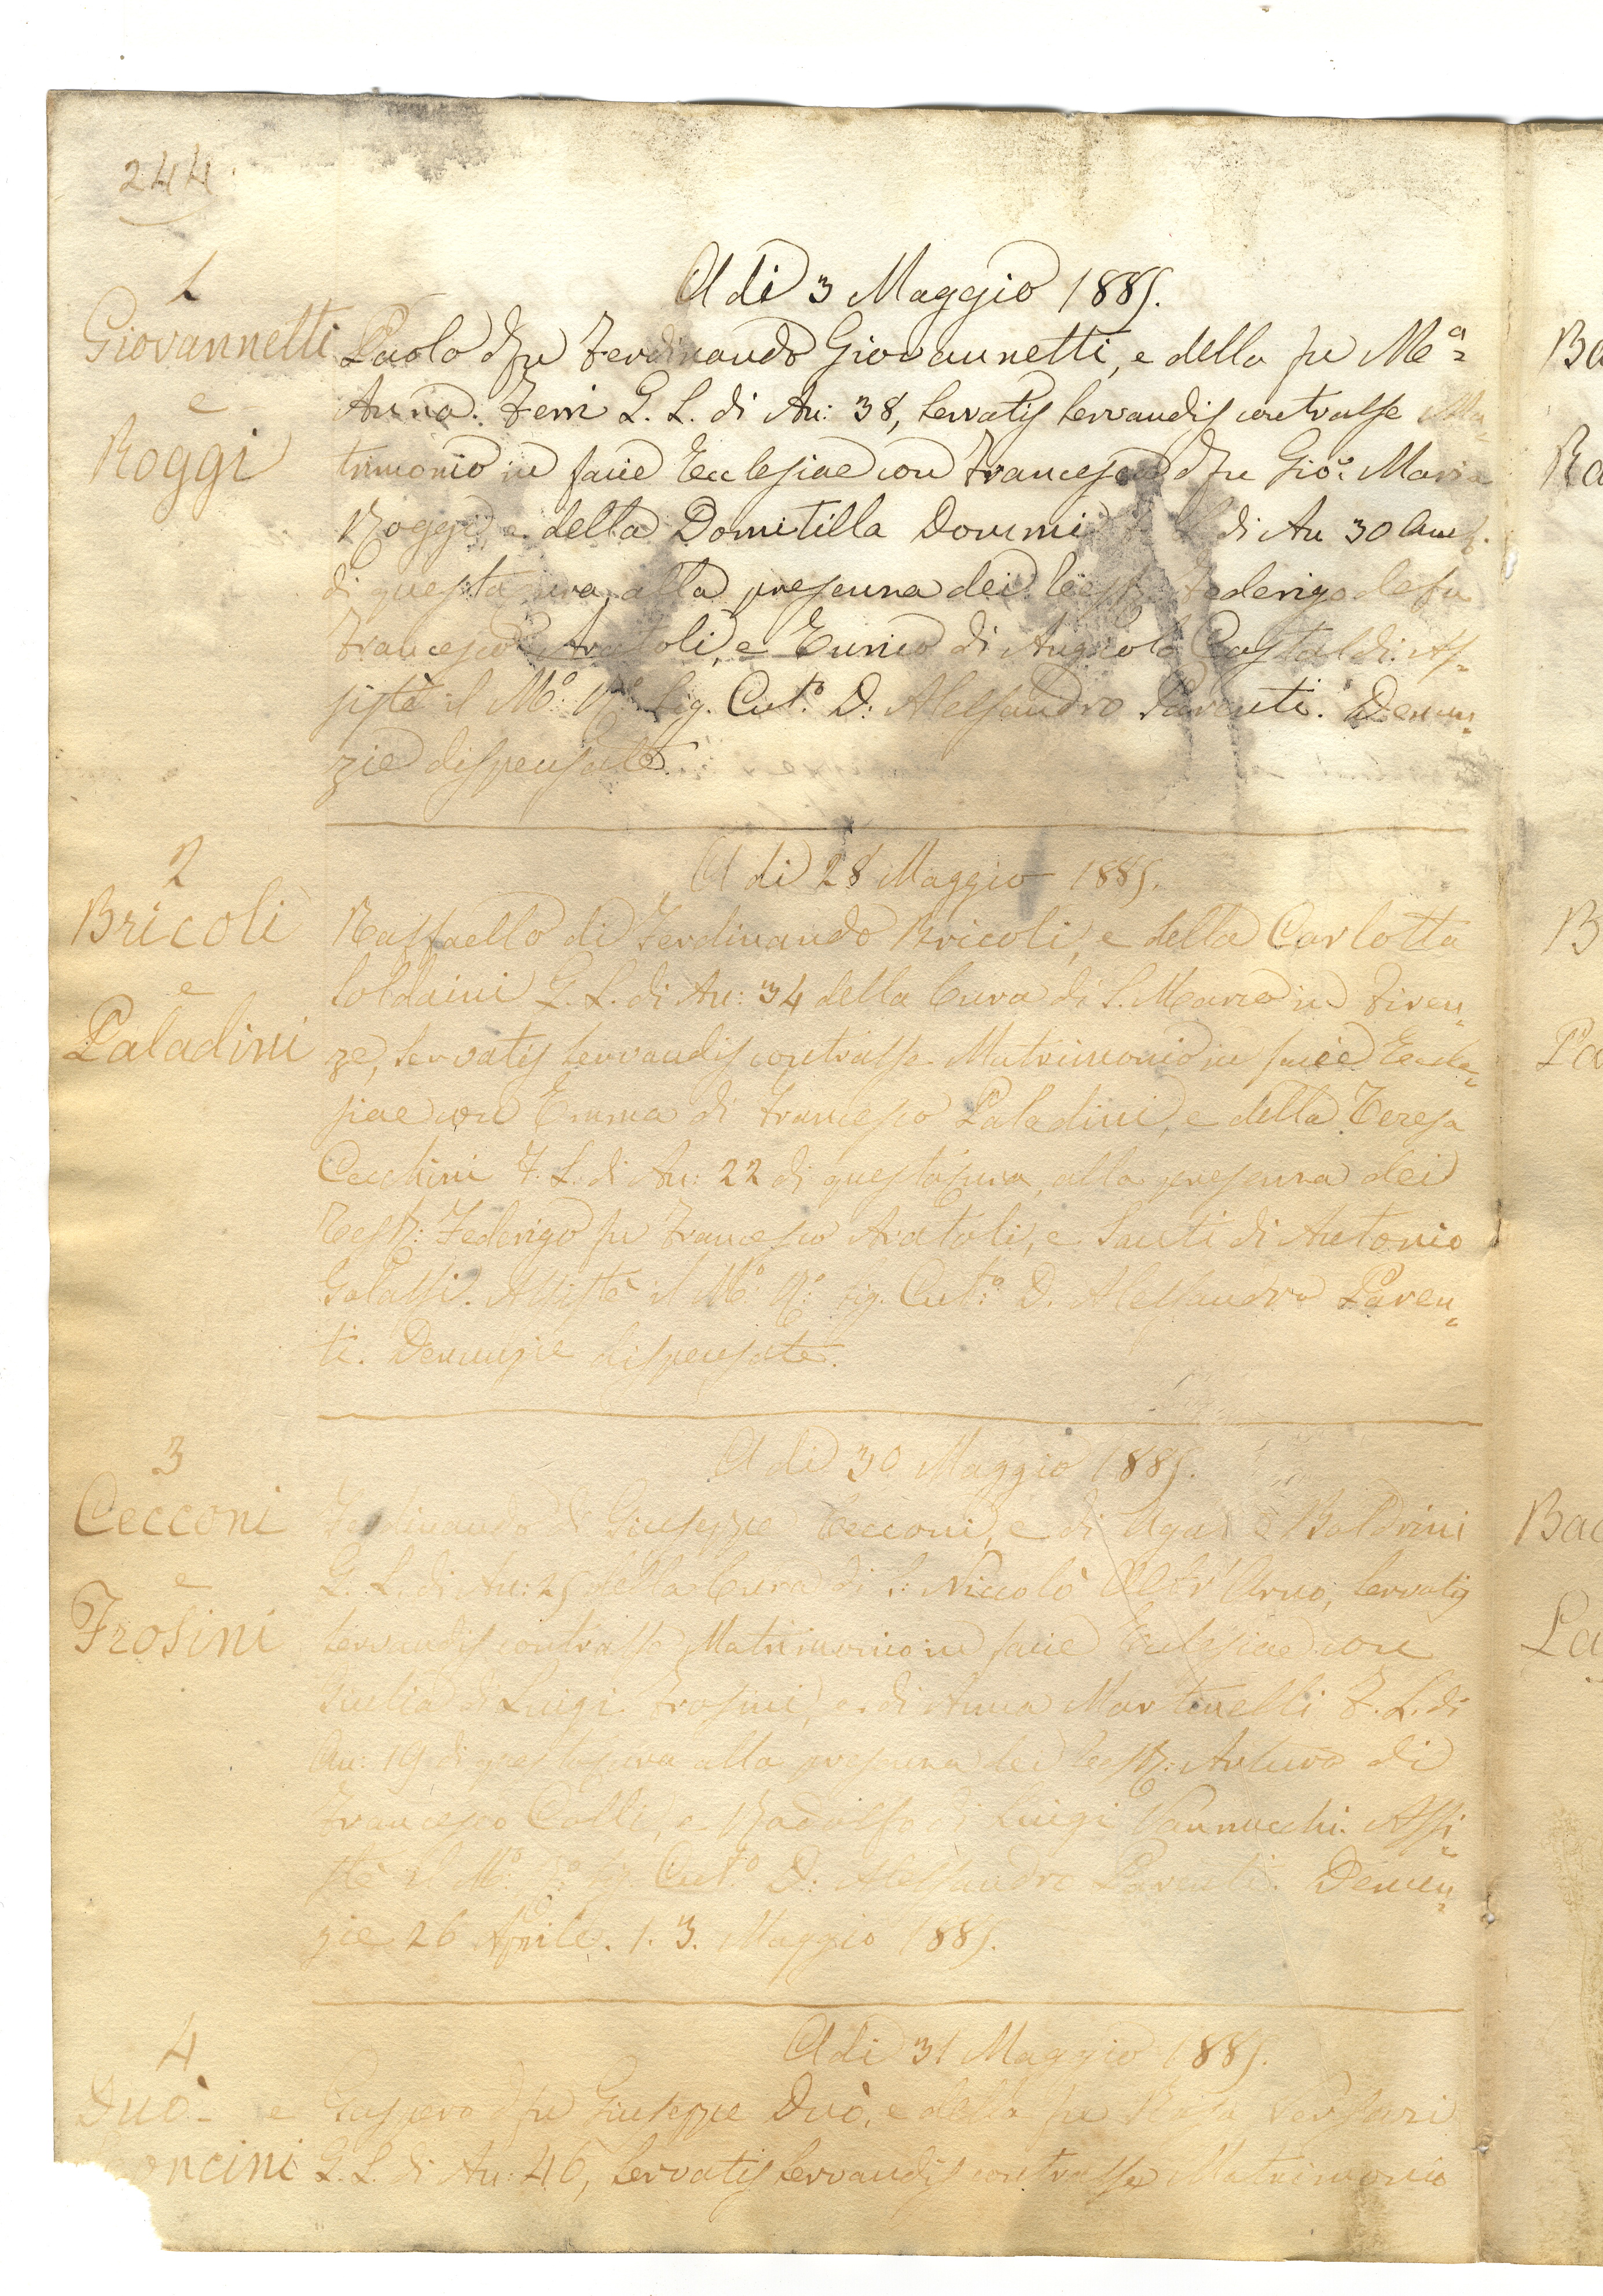 244
A dì 3 Maggio 1885.
1
Giovannetti
e
Roggi
Paolo dfu Ferdinando Giovannetti, e della fu Mª
Anna Ferri G. L. di An: 38, servatis servandis contrasse Ma=
trimonio in facie Ecclesiae con Francesca dfu Gio: Maria
Roggi, e della Domitilla di An 30
di questa cura, alla presenza dei Testi: Federigo del fu
Francesco Aratoli, e di Angiolo Castaldi. As=
sistè il Mº Rº Sig. Cutº D: Alessandro Parenti. Denun=
zie dispensate.
A dì 28 Maggio 1885.
2
Bricoli
e
Paladini
Raffaello di Ferdinando Bricoli, e della Carlotta
Soldaini G. L. di An: 34 della Cura di S. Marco in Firen=
ze, servatis servandis contrasse Matrimonio in facie Eccle=
siae con Emma di Francesco Paladini, e della Teresa
Cecchini F. L. di An: 22 di questa cura, alla presenza dei
Testi: Federigo fu Francesco Aratoli, e Santi di Antonio
Galassi. Assistè il Mº Rº Sig. Cutº D. Alessandro Paren=
ti. Denunzie dispensate.
A dì 30 Maggio 1885.
3
Cecconi
e
Frosini
Ferdinando di Giuseppe Cecconi, e di Baldrini
G. L. di An: 25 della Cura di S: Niccolò Oltr'Arno, servatis
servandis contrasse Matrimonio in facie Ecclesiae con
Giulia di Luigi Frosini, e di Anna Martinelli F. L. di
An: 19 di questa cura alla presenza dei Testi: Arturo di
Francesco Colli, e Rodolfo di Luigi Vannucchi. Assi=
stè il Mº Rº Sig. Cutº D: Alessandro Parenti. Denun=
zie 26 Aprile. 1. 3. Maggio 1885.
A dì 31 Maggio 1885.
4
Duò e
oncini
Gaspero dfu Giuseppe Duò, e della fu Rosa
G. L. di An: 46, servatis servandis contrasse Matrimonio
Ba
Ro
B
Pa
Bac
La